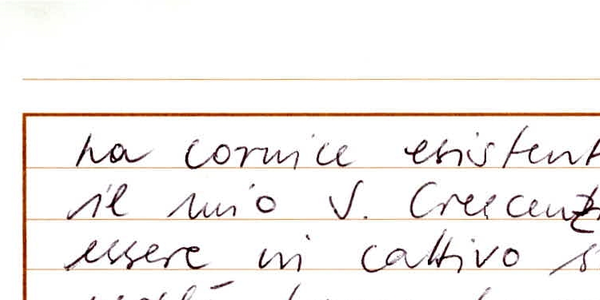 La cornice esistent
il mio S. Crescenz
essere in cattivo s